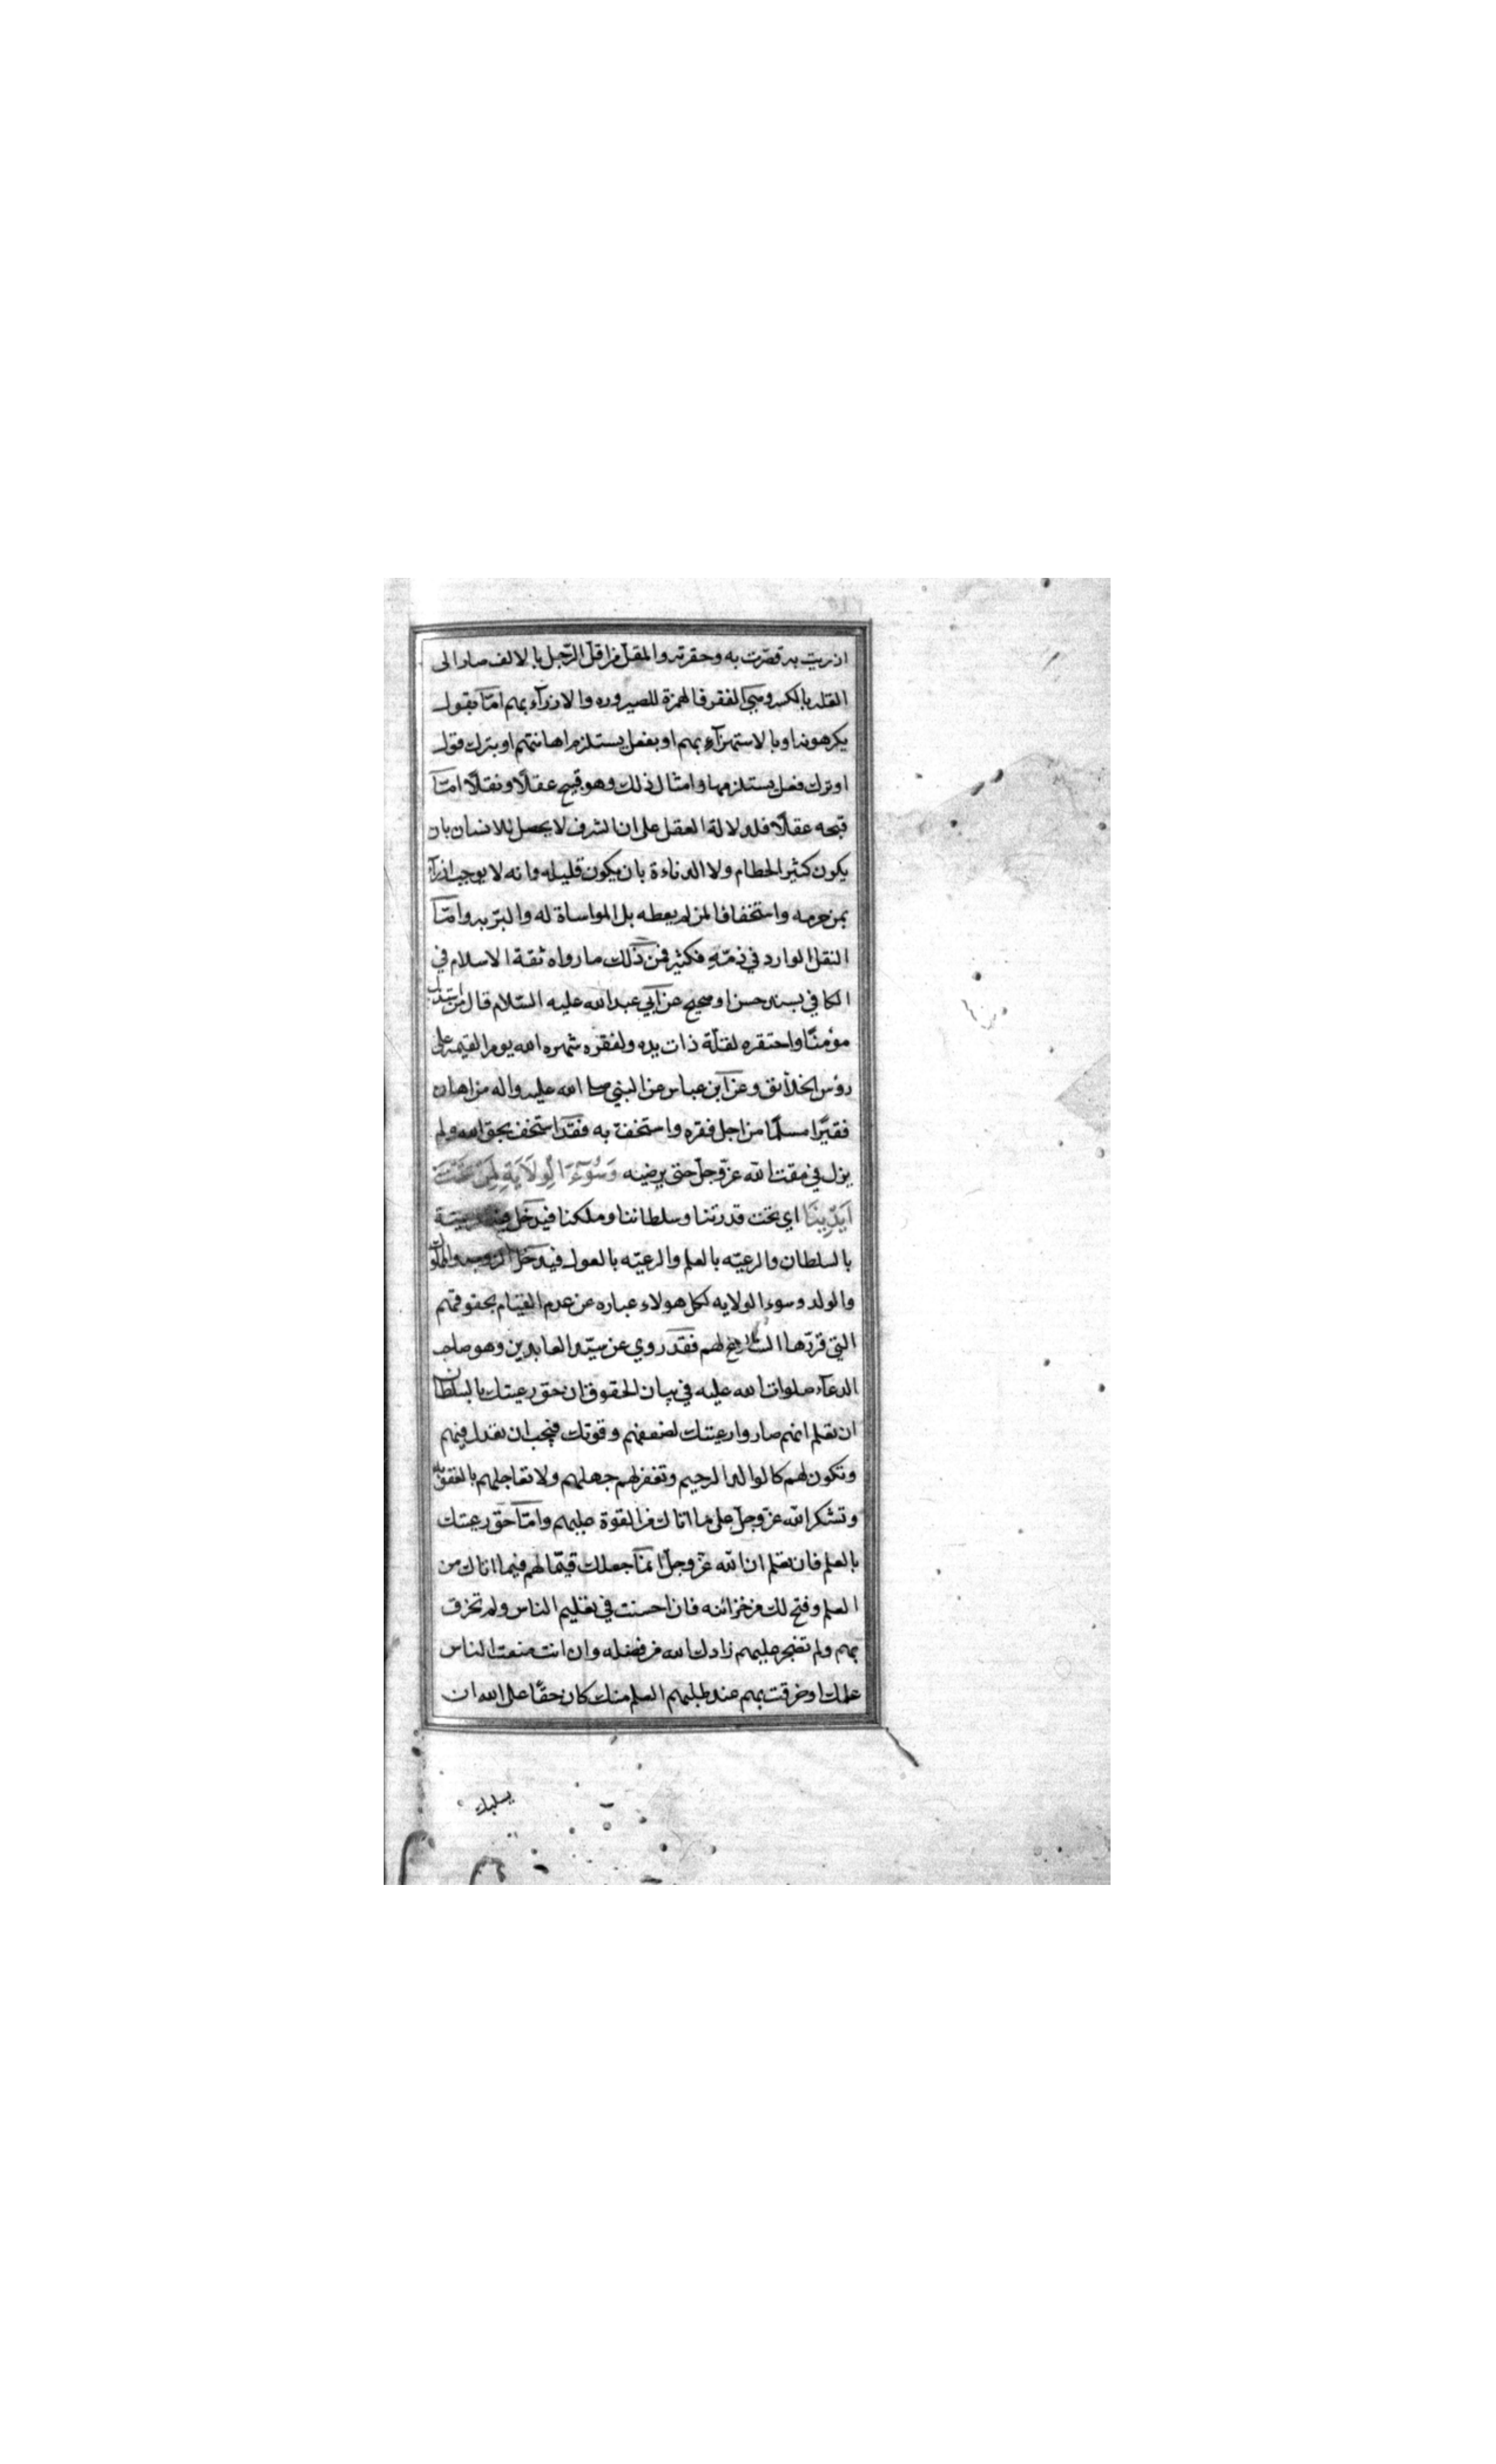 ازريت به قصرت به وحقرته والمقل من اقل الرّجل بالالف صار الى
القله بالكسر وهي الفقر فالهمزة للصيروره والازرآء بهم امّا بقول
يكرهونه او بالاستهزآء بهم او بفعل يستلزم اهانتهم او بترك قول
او ترك فعل يستلزمها وامثال ذلك وهو قبيح عقلًا ونقلًا امّا
قبحه عقلًا فلدلالة العقل على ان الشرف لا يحصل للانسان بان
يكون كثير الحطام ولا الدناءة بان يكون قليله وانه لا يوجب ازرآء
بمن حرمه واستخفافا لمن لم يعطه بل المواساة له والبرّ به وامّا
النقل الوارد في ذمّه فكثير فمن ذلك ما رواه ثقة الاسلام في
الكافي بسند حسن او صحيح عن ابي عبد الله عليه السّلام قال من استذل
مؤمنًا واحتقره لقلّة ذات يده ولفقره شهره الله يوم القيمة على
رؤس الخلائق وعن ابن عباس عن النبي صلى الله عليه واله من اهان
فقيرًا مسلمًا من اجل فقره واستخف به فقد استخف بحق الله ولم
يزل في مقت الله عزّ وجلّ حتى يرضيه وَسُوٓءَ الْوِلَايَةِ لِمَنْ تَحْتَ
اَيْدِينَا اي تحت قدرتنا وسلطاننا وملكنا فيدخل فيه الرعيّة
بالسلطان والرعيّه بالعلم والرعيّه بالعول فيدخل الزوجه والمملوك
والولد وسوء الولايه لكل هولاء عباره عن عدم القيام بحقوقهم
التي قررّها الشارع لهم فقد روي عن سيّد العابدين وهو صاحب
الدعآء صلوات الله عليه في بيان الحقوق ان حق رعيتك بالسلطان
ان تعلم انهم صاروا رعيتك لضعفهم وقوتك فيجب ان تعدل فيهم
وتكون لهم كالوالد الرحيم وتغفر لهم جهلهم ولا تعاجلهم بالعقوبه
وتشكر الله عزّ وجلّ على ما اتاك من القوة عليهم وامّا حق رعيتك
بالعلم فان تعلم ان الله عزّ وجلّ انمّا جعلك قيّمًا لهم فيما اتاك من
العلم وفتح لك من خزائنه فان احسنت في تعليم الناس ولم تخرق
بهم ولم تضجر عليهم زادك الله من فضله وان انت منعت الناس
علمك او خرقت بهم عند طلبهم العلم منك كان حقًا على الله ان
يسلبك